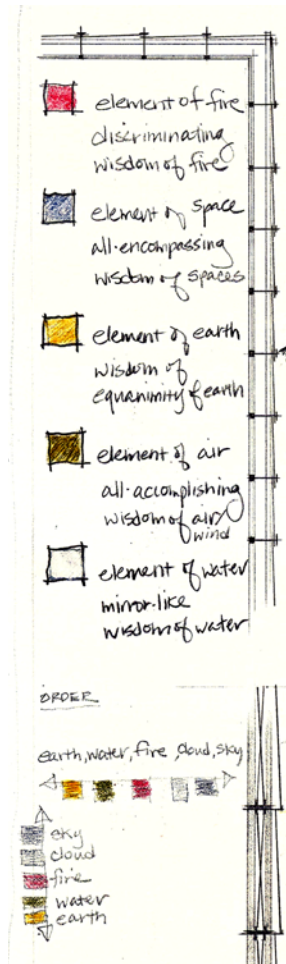 element of fire
discriminating
wisdom of fire
element of space
all-encompassing
wisdom of spaces
element of earth
wisdom of
equanimity of earth
element of air
all-accomplishing
wisdom of air/
wind
element of water
mirror-like
wisdom of water
ORDER
earth, water, fire, cloud, sky
sky
cloud
fire
water
earth